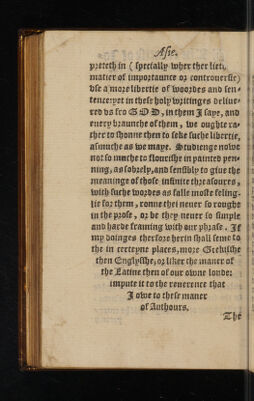 Asie.
preteth in (specially wher ther lieth
matier of importaunce or controuersie)
vse a more libertie of woordes and sen-
tence: yet in these holy writinges deliue-
red vs fro GOD, in them I saye, and
euery braunche of them, we oughte ra-
ther to shonne then to seke suche libertie,
asmuche as we maye. Studienge nowe
not so muche to flourishe in painted pen-
ning, as sobrely, and sensibly to giue the
meaninge of those infinite threasours,
with suche wordes as falle moste seling-
lie for them, ronne thei neuer so roughe
in the prose, or be they neuer so simple
and harde framing with our phrase. If
my doinges therfore herin shall seme to
the in certeyne places, more Grekisshe
then Englysshe, or liker the maner of
the Latine then of our owne londe:
impute it to the reuerence that
I owe to these maner
of Authours.
The